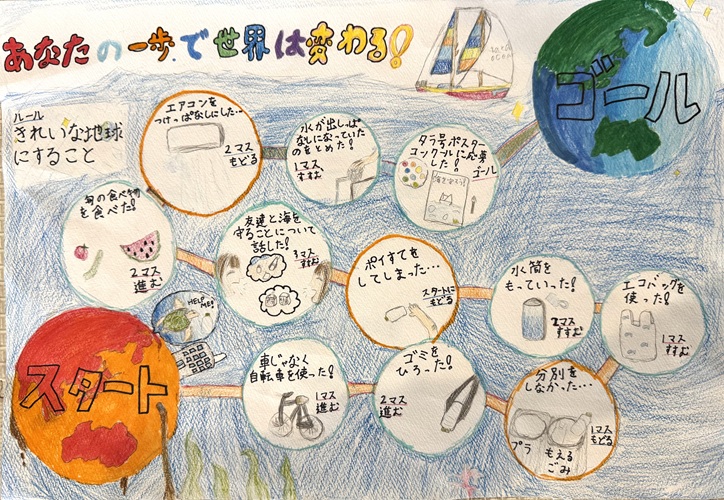 あなたの一歩で世界は変わる!
ルール
きれいな地球
にすること
ゴール
スタート
HELP
ME!
車じゃなく
自転車を使った!
1マス
進む
ゴミを
ひろった!
2マス
進む
分別を
しなかった…
1マス
もどる
プラ
もえる
ごみ
エコバッグを
使った!
1マス
すすむ
水筒を
もっていった!
2マス
すすむ
ポイすてを
してしまった…
スタートに
もどる
友達と海を
守ることについて
話した!
3マス
すすむ
旬の食べ物
を食べた!
2マス
進む
エアコンを
つけっぱなしにした…
2マス
もどる
水が出しっぱ
なしになっていた
のをとめた!
1マス
すすむ
タラ号ポスター
コンクールに応募
した!
ゴール